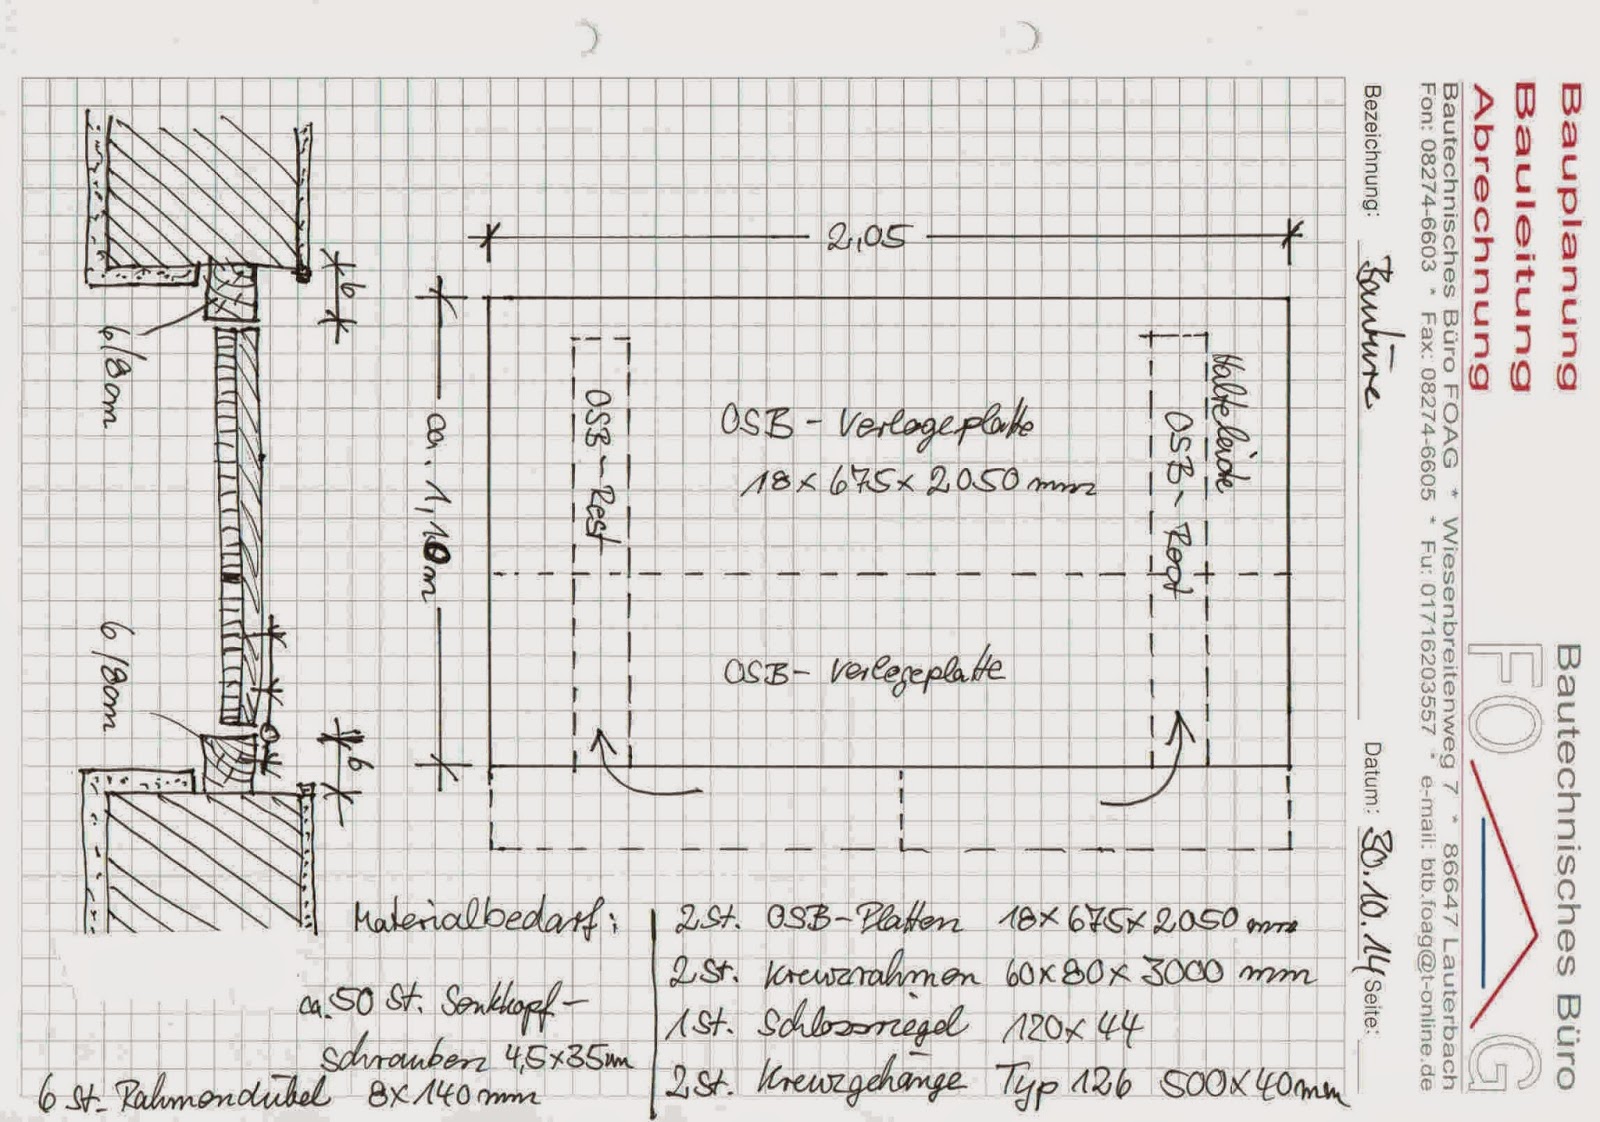 Bauplanung
Bauleitung
Abrechnung
Bautechnisches Büro FOAG * Wiesenbreitenweg 7 * 86647 Lauterbach
Fon: 08274-6603 * Fax: 08274-6605 * Fu: 01716203557 * e-mail: btb.foag@t-online.de
Bautechnisches Büro
FO G
Bezeichnung: Bautüre
Datum: 30.10.14 Seite:
2,05
ca. 1,10m
6
6/8cm
6/8cm
6
OSB-Rest
OSB - Verlegeplatte
18 x 675 x 2050 mm
Halteleiste
OSB-Rest
OSB - Verlegeplatte
Materialbedarf:
2 St. OSB-Platten 18 x 675 x 2050 mm
2 St. Kreuzrahmen 60 x 80 x 3000 mm
1 St. Schlossriegel 120 x 44
2 St. Kreuzgehänge Typ 126 500 x 40 mm
ca. 50 St. Senkkopf-
schrauben 4,5 x 35 mm
6 St. Rahmendübel 8 x 140 mm